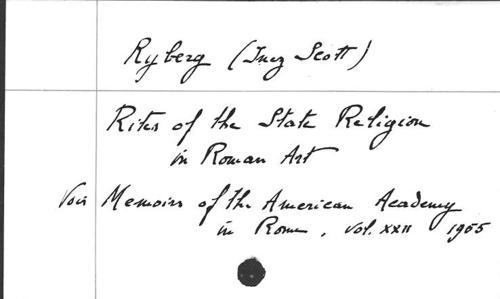 Ryberg (Inez Scott)
Rites of the State Religion
in Roman Art
Voir Memoirs of the American Academy
in Rome, vol. XXII 1955